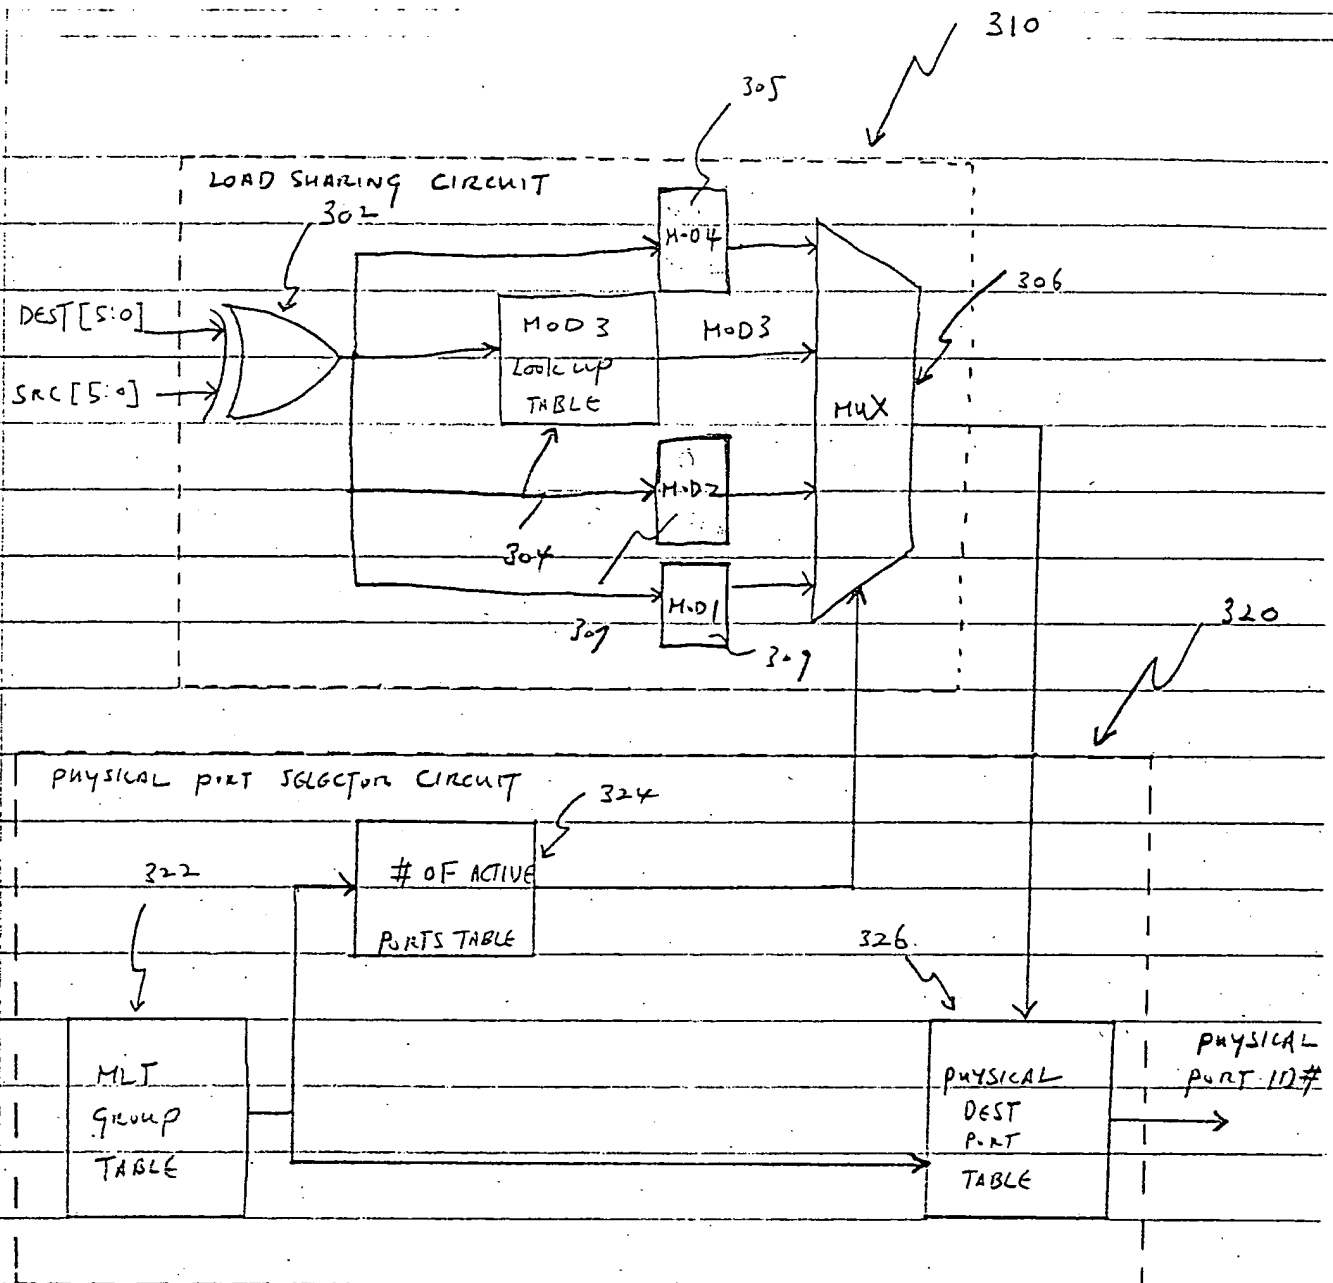 310
305
LOAD SHARING CIRCUIT
302
MOD4
306
DEST[5:0]
MOD3
LOOK UP
TABLE
MOD3
SRC[5:0]
MUX
MOD2
304
MOD1
307
309
320
PHYSICAL PORT SELECTOR CIRCUIT
324
322
# OF ACTIVE
PORTS TABLE
326
MLT
GROUP
TABLE
PHYSICAL
DEST
PORT
TABLE
PHYSICAL
PORT ID#